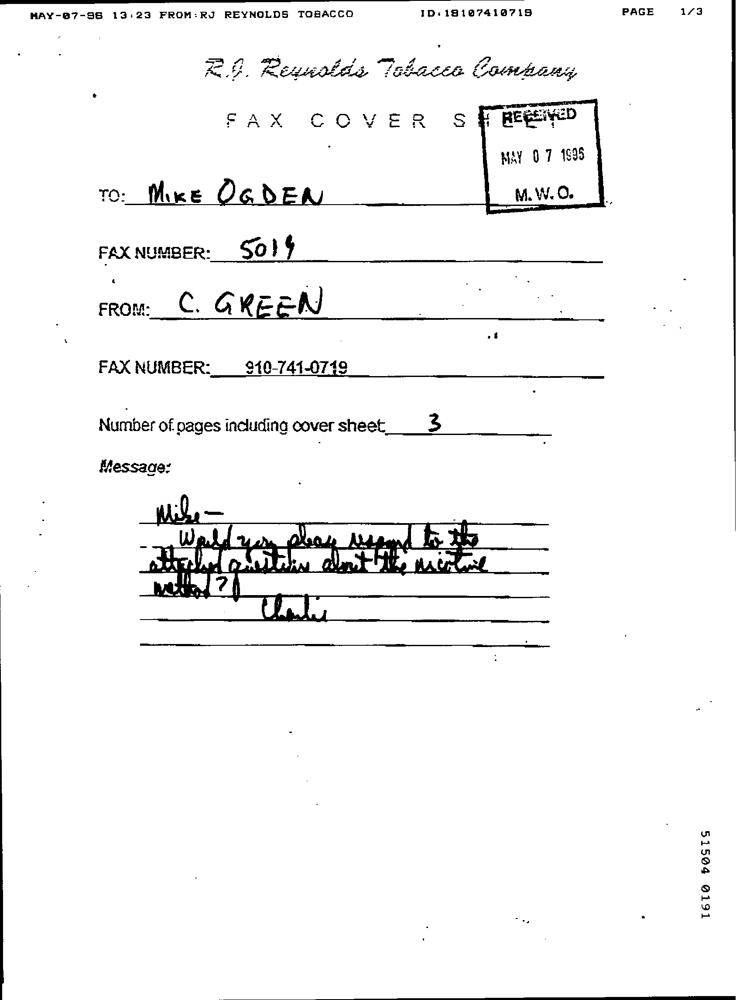 MAY-07-96 13:23 FROM:RJ REYNOLDS TOBACCO ID:19107410719 PAGE 1/3
R.J. Reynolds Tobacco Company
FAX COVER SHEET
RECEIVED
MAY 07 1996
M.W.O.
TO: MIKE OGDEN
FAX NUMBER: 5019
FROM: C. GREEN
FAX NUMBER: 910-741-0719
Number of pages including cover sheet 3
Message:
Mike —
Would you please respond to the
attached questions about the nicotine
method?
Charlie
51504 0191